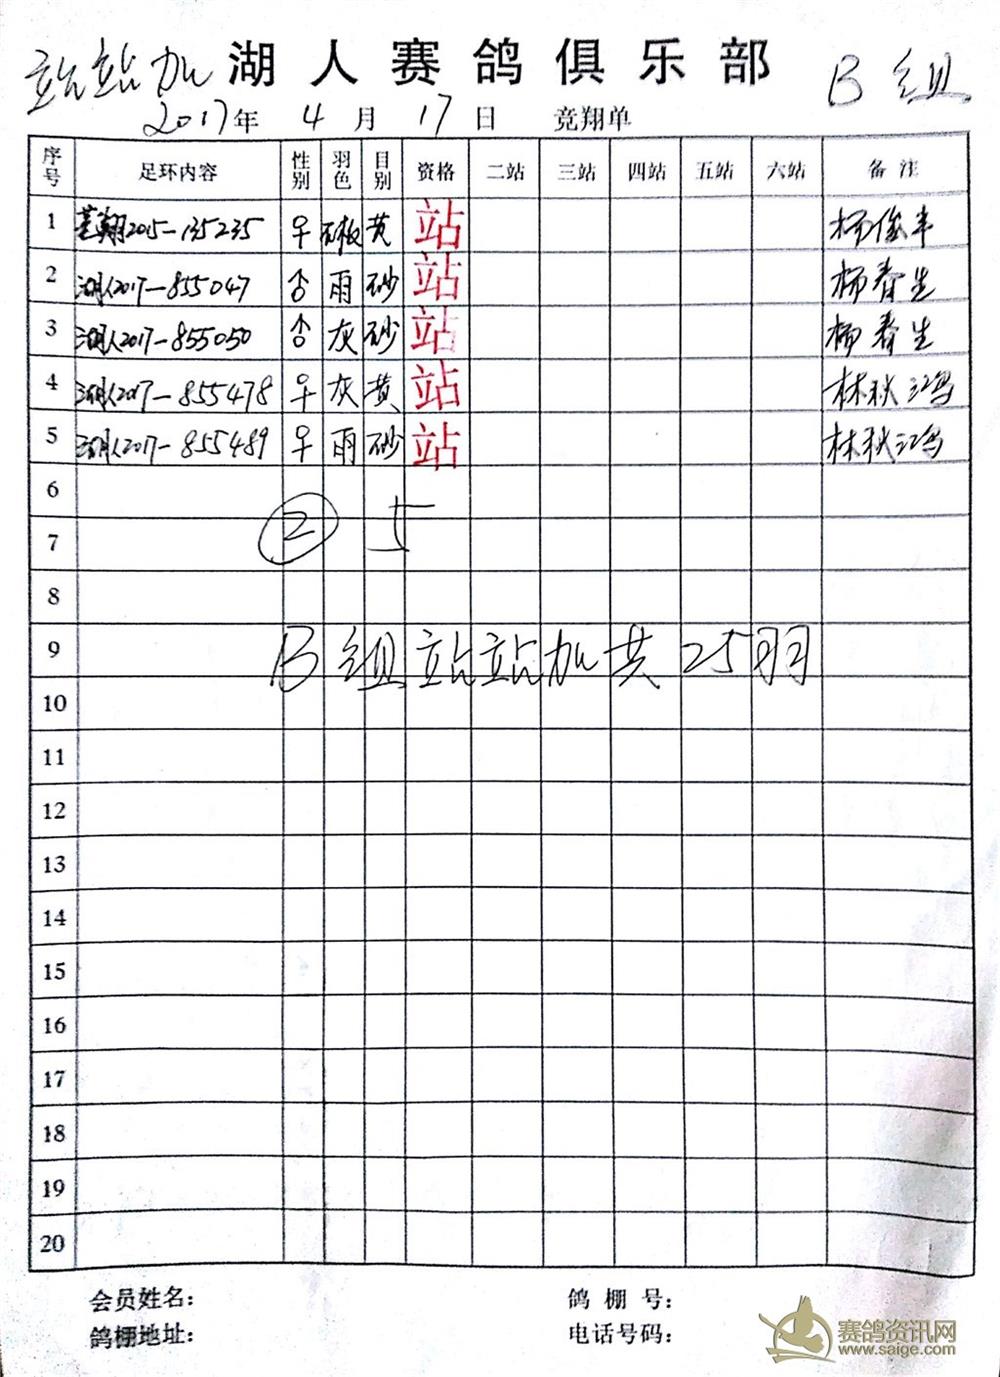 站站加 湖人赛鸽俱乐部 B组
2017年 4月 17日 竞翔单
序号 足环内容 性别 羽色 目别 资格 二站 三站 四站 五站 六站 备注
1 翔2015-135235 ♀ 石板 黄 站 杨俊丰
2 湖人2017-855047 ♂ 雨 砂 站 杨春生
3 湖人2017-855050 ♂ 灰 砂 站 杨春生
4 湖人2017-855478 ♀ 灰 黄 站 林秋鸿
5 湖人2017-855489 ♀ 雨 砂 站 林秋鸿
6
② 5
7
8
9 B组站站加共25羽
10
11
12
13
14
15
16
17
18
19
20
会员姓名： 鸽棚号：
鸽棚地址： 电话号码：
赛鸽资讯网
www.saige.com